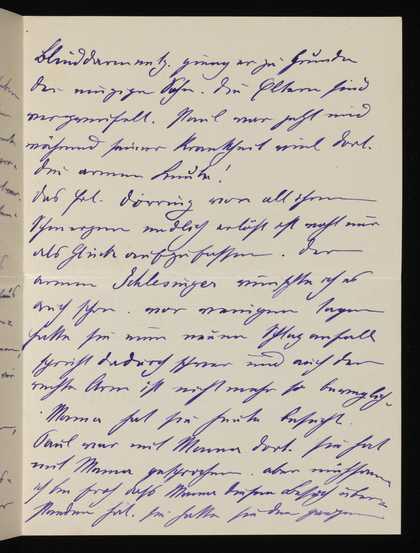 Blinddarmentz. ging er zu Grunde
der einzige Sohn. Die Eltern sind
verzweifelt. Paul war jetzt und
während seiner Krankheit viel dort.
Die armen Leute!
Das Frl. Döring von all ihren
Schmerzen endlich erlöst ist wohl nur
als Glück aufzufassen. Der
armen Schlesinger wünschte ich es
auch schon. Vor wenigen Tagen
hatte sie einen neuen Schlaganfall
spricht dadurch schwer und auch der
rechte Arm ist nicht mehr so beweglich
. Mama hat sie heute besucht.
Paul war mit Mama dort. Sie hat
mit Mama gesprochen. aber
ich bin froh daß Mama diesen Besuch über-
standen hat. Sie hatte sie den ganzen